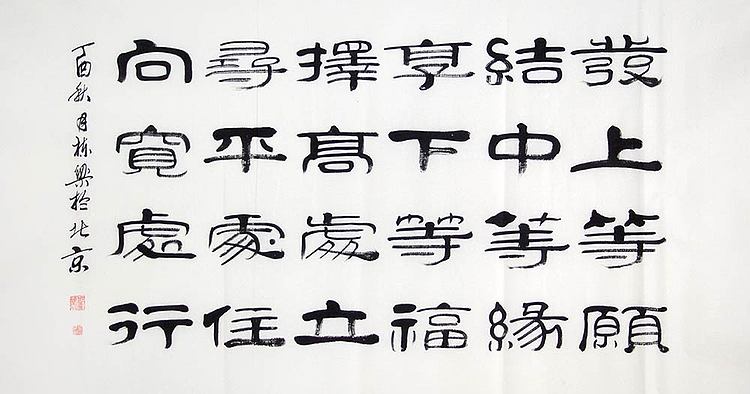 發上等願
結中等緣
享下等福
擇高處立
尋平處住
向寬處行
丁酉秋月栋樂於北京